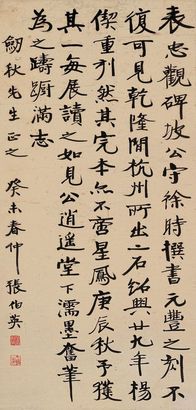 表忠觀碑坡公守徐時撰書元豐之刻不
復可見乾隆間杭州所出二石紹興廿九年楊
偰重刊然其完本亦不啻星鳳庚辰秋予獲
其一每展讀之如見公逍遙堂下濡墨奮筆
為之躊躇滿志
秋先生正之 癸未春仲 張伯英